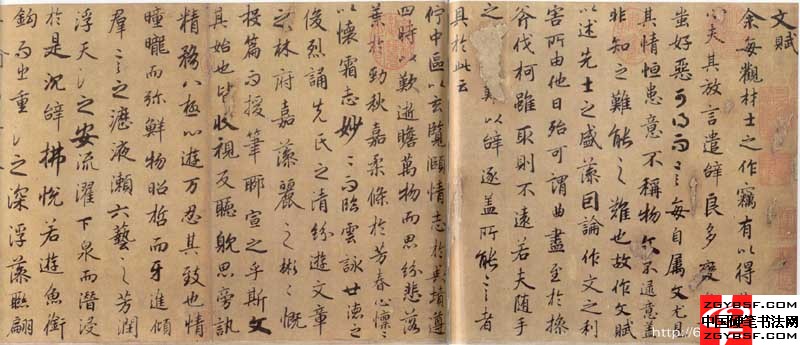 文賦
余每觀材士之作竊有以得
心夫其放言遣辞良多變
蚩好惡可得而言每自属文尤見
其情恒患意不稱物文不逮意盖
非知之難能之難也故作文賦
以述先士之盛藻因論作文之利
害所由他日殆可謂曲盡至於操
斧伐柯雖取則不遠若夫随手
之難以辞逐盖所能言者
具於此云
佇中區以玄覽頤情志於典墳遵
四時以歎逝瞻萬物而思紛悲落
葉於勁秋嘉柔條於芳春心懍〻
以懷霜志妙〻而臨雲詠世德之
俊烈誦先民之清芬遊文章
之林府嘉藻麗之彬〻慨
投篇而援筆聊宣之乎斯文
其始也皆收視反聽耽思旁訊
精騖八極心遊万仞其致也情
曈曨而弥鮮物昭晢而互進傾
群言之瀝液漱六藝之芳潤
浮天淵之安流濯下泉而潜浸
於是沉辞拂悦若遊魚銜
鈎而出重淵之深浮藻聯翩
ZGYBSF.COM
中国硬笔书法网
ZGYBSF.COM
http://6